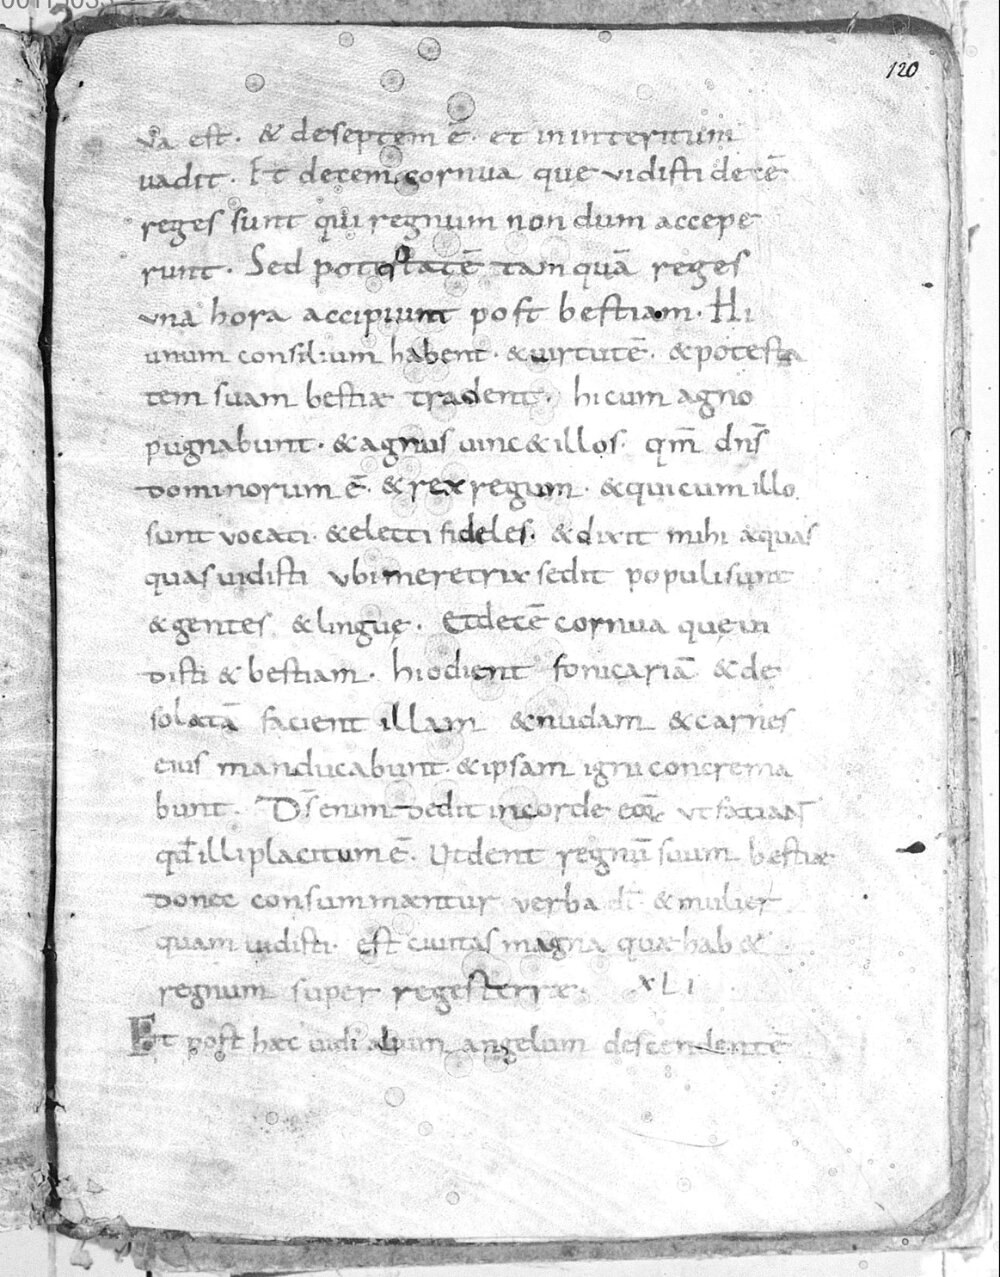 120
va est. & deseptem ē. et in interitum
uadit. Et decem cornua que vidisti decē
reges sunt qui regnum non dum accepe
runt. Sed potestatē tam quā reges
vna hora accipiunt post bestiam. Hi
unum consilium habent. & uirtutē. & potesta
tem suam bestiæ tradent. hi cum agno
pugnabunt. & agnus uinc& illos. qm̄ dn̄s
dominorum ē. & rex regum. & qui cum illo
sunt vocati. & electi fideles. & dixit mihi aquas
quas uidisti vbi meretrix sedit populi sunt
& gentes & lingue. Et decē cornua que ui
disti & bestiam. hi odient fonicariā & de
solatā facient illam & nudam & carnes
eius manducabunt. & ipsam igni concrema
bunt. D̄s enim dedit in corde eoꝝ vt faciant
qđ illi placitum ē. Vt dent regnū suum bestiæ
donec consummantur verba dī & mulier
quam uidisti. est ciuitas magna quæ hab&
regnum super reges terræ. XLI
Et post hæc uidi alium angelum descendentē